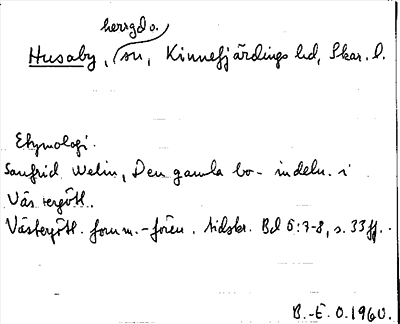 herrgd o.
Husaby, sn, Kinnefjärdings hd, Skar. l.
Etymologi.
Sanfrid Welin, Den gamla bo-indeln. i
Västergötl.
Västergötl. fornm.-fören. tidskr. Bd 5:7-8, s. 33 ff.
B.-E. O. 1960.